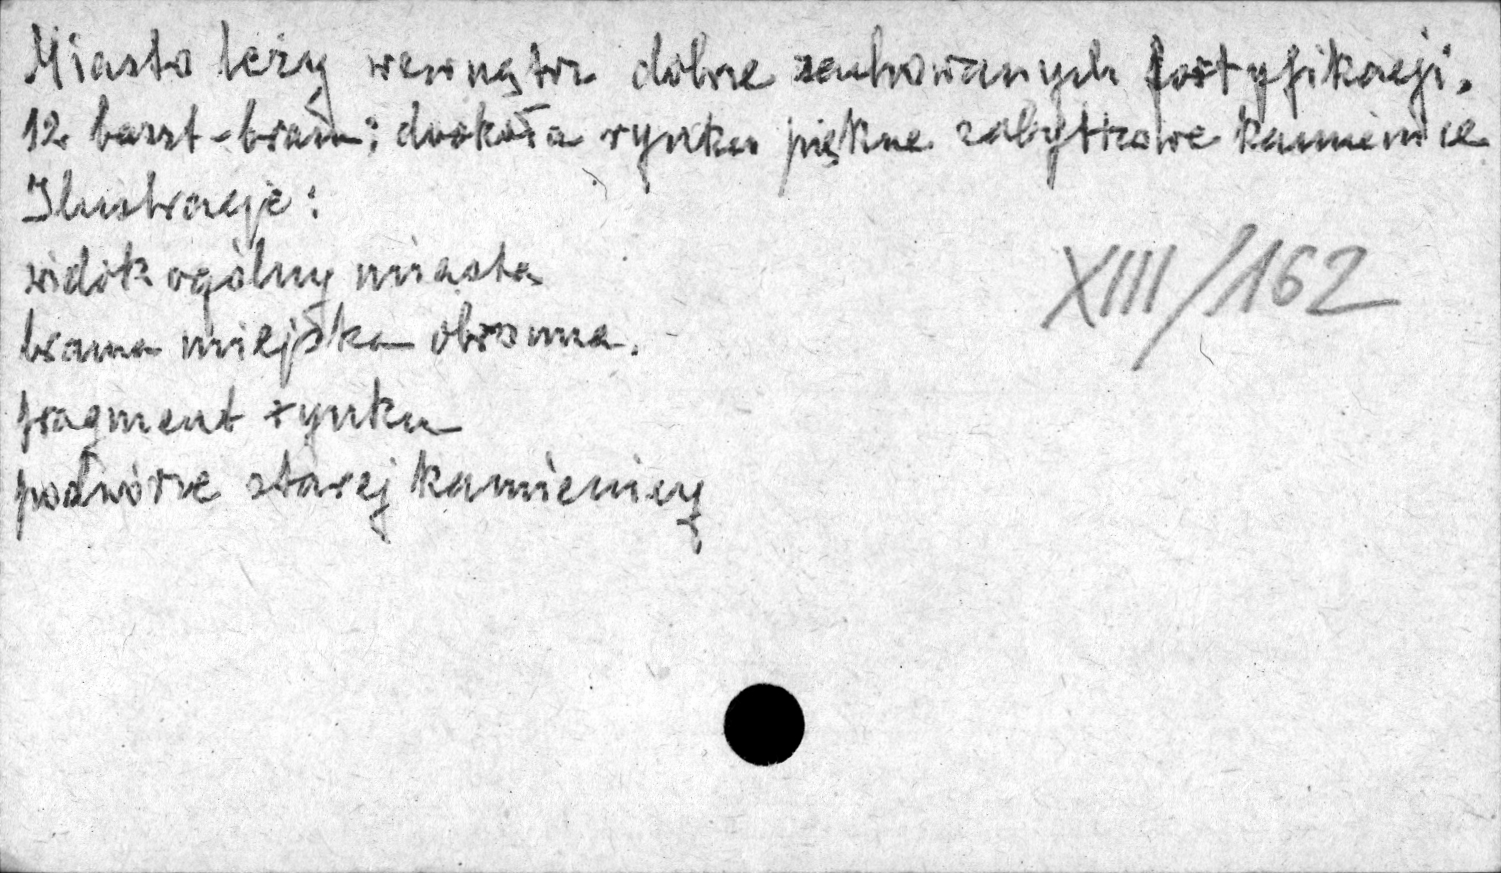 Miasto leży wewnątrz dobrze zachowanych fortyfikacji.
12 baszt-bram; dookoła rynku piękne zabytkowe kamienice
Ilustracje:
widok ogólny miasta
brama miejska obronna.
fragment rynku
podwórze starej kamienicy
XIII/162